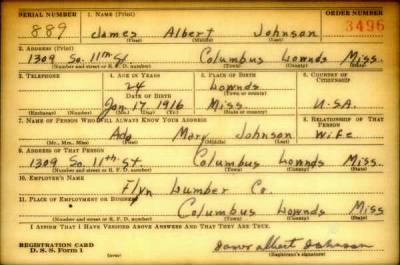 SERIAL NUMBER 1. NAME (Print) ORDER NUMBER
889 James Albert Johnson 3496
(First) (Middle) (Last)
2. ADDRESS (Print)
1309 So. 11th St. Columbus Lownds Miss.
(Number and street or R. F. D. number) (Town) (County) (State)
3. TELEPHONE 4. AGE IN YEARS 5. PLACE OF BIRTH 6. COUNTRY OF CITIZENSHIP
24 Lownds
DATE OF BIRTH (Town or county)
Jan. 17 1916 Miss. U.S.A.
(Exchange) (Number) (Mo.) (Day) (Yr.) (State or country)
7. NAME OF PERSON WHO WILL ALWAYS KNOW YOUR ADDRESS 8. RELATIONSHIP OF THAT PERSON
Ada Mary Johnson Wife
(Mr., Mrs., Miss) (First) (Middle) (Last)
9. ADDRESS OF THAT PERSON
1309 So. 11th St Columbus Lownds Miss.
(Number and street or R. F. D. number) (Town) (County) (State)
10. EMPLOYER'S NAME
Flyn Lumber Co.
11. PLACE OF EMPLOYMENT OR BUSINESS
Columbus Lownds Miss
(Number and street or R. F. D. number) (Town) (County) (State)
I AFFIRM THAT I HAVE VERIFIED ABOVE ANSWERS AND THAT THEY ARE TRUE.
REGISTRATION CARD James Albert Johnson
D. S. S. Form 1 (over) (Registrant's signature)